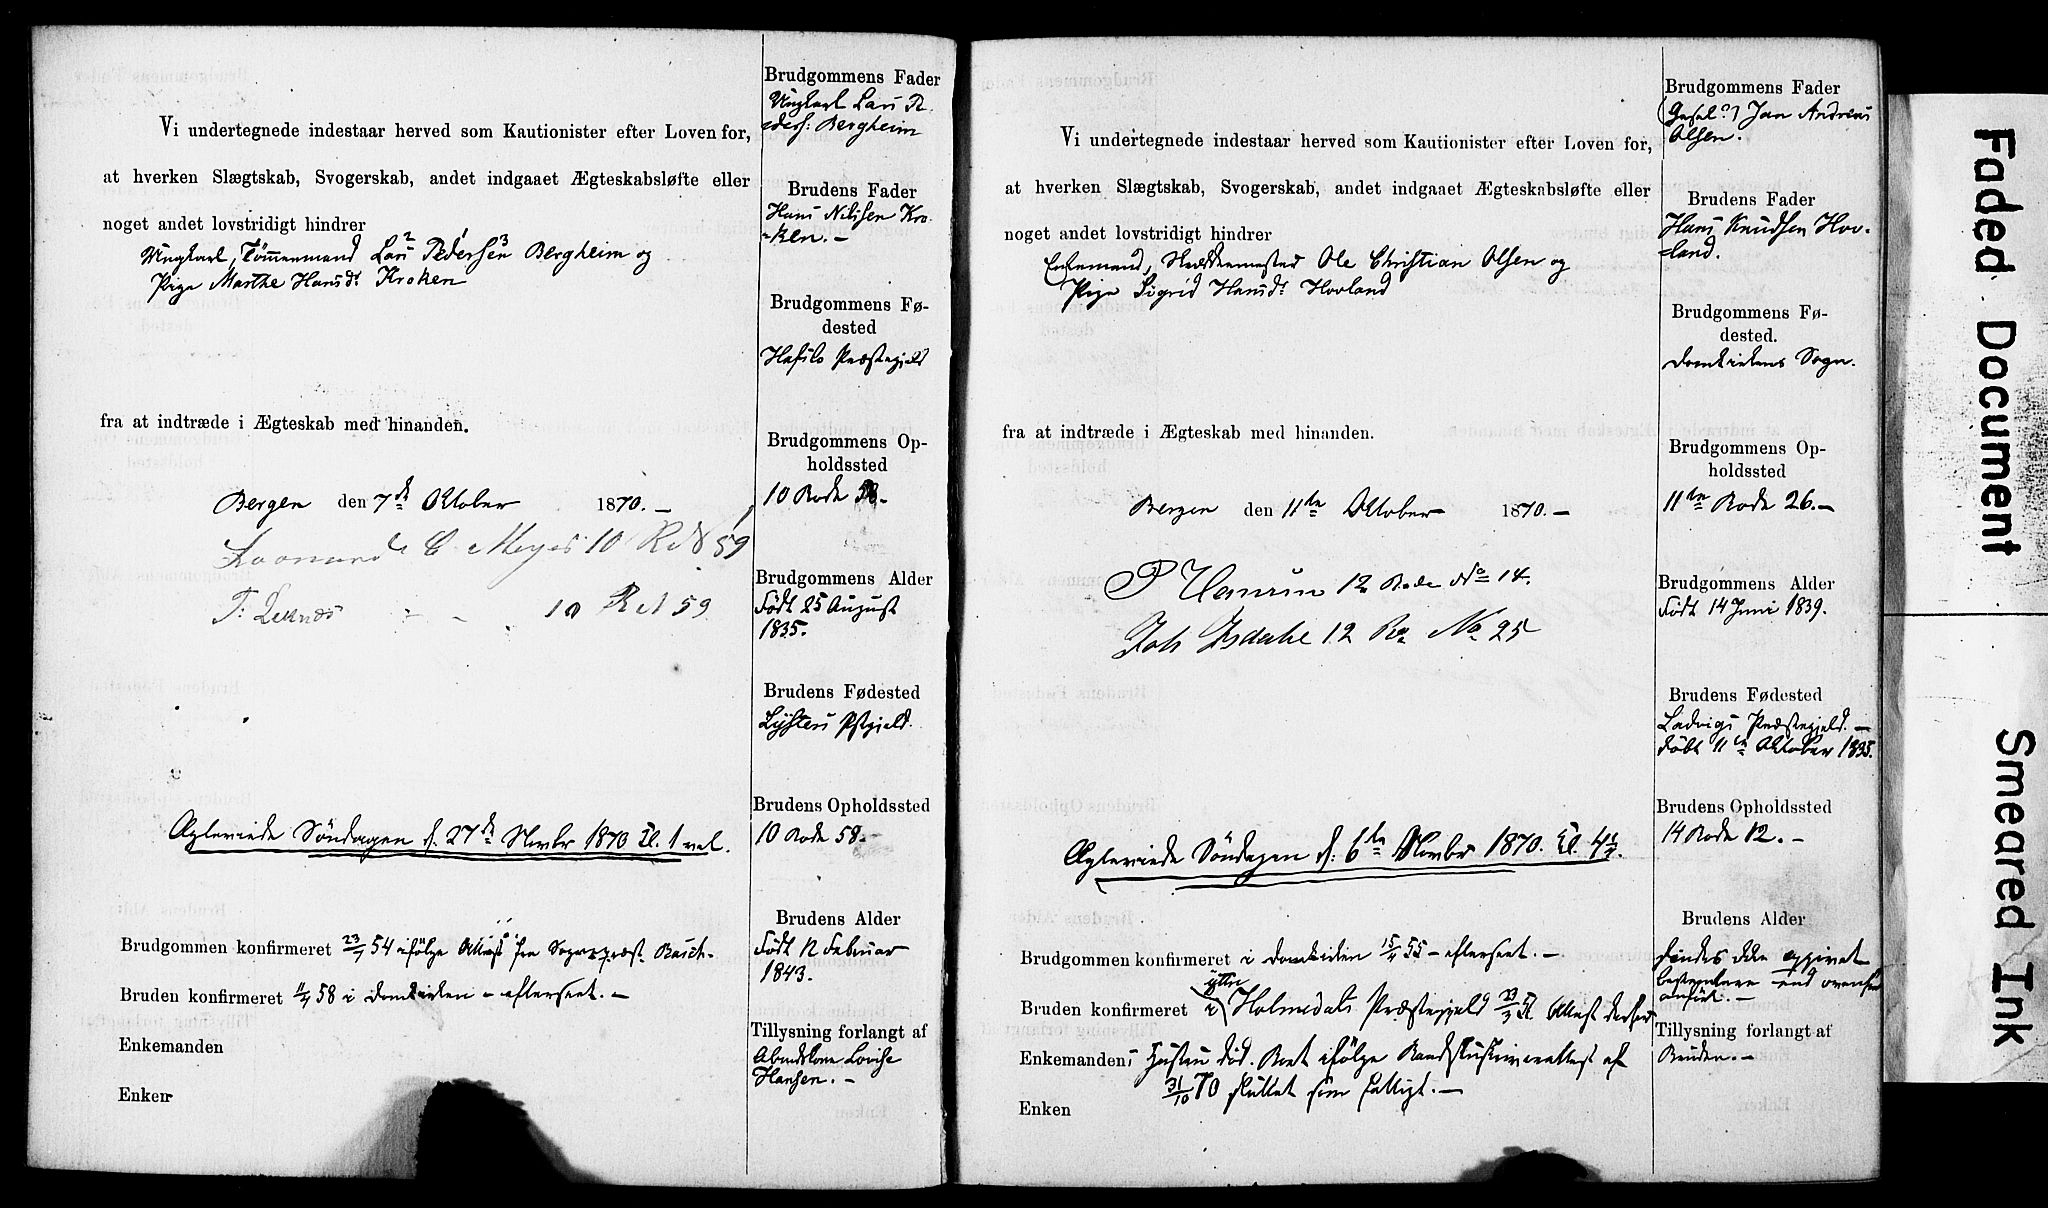 Vi undertegnede indestaar herved som Kautionister efter Loven for,
at hverken Slægtskab, Svogerskab, andet indgaaet Ægteskabsløfte eller
noget andet lovstridigt hindrer
Ungkarl, Tömmermand Lars Pedersen Bergheim og
Pige Marthe Hansdr Kroken
fra at indtræde i Ægteskab med hinanden.
Bergen den 7de Oktober 1870. –
C. Meyer 10 Rd 59
10 Rd 59
Ægteviede Söndagen d. 27de Novbr 1870 Kl. 1
Brudgommen konfirmeret 54 ifölge Attest fra Sognepræst
Bruden konfirmeret 58 i Domkirken – efterseet. –
Enkemanden
Enken
Brudgommens Fader
Ungkarl Lars Pe
ders: Bergheim
Brudens Fader
Hans Nilsen Kro-
-ken. –
Brudgommens Fø-
dested
Hafslo Præstegjeld
Brudgommens Op-
holdssted
10 Rode 58. –
Brudgommens Alder
Født 25 August
1835.
Brudens Fødested
Lysters Pstgjeld.
Brudens Opholdssted
10 Rode 58. –
Brudens Alder
Født 12 Februar
1843.
Tillysning forlangt af
Lovise
Hansen. –
Vi undertegnede indestaar herved som Kautionister efter Loven for,
at hverken Slægtskab, Svogerskab, andet indgaaet Ægteskabsløfte eller
noget andet lovstridigt hindrer
Enkemand, Ole Christian Olsen og
Pige Sigrid Hansdr Hovland
fra at indtræde i Ægteskab med hinanden.
Bergen den 11te Oktober 1870. –
P Hansen 12 Rode No 14.
Joh Isdahl 12 Ro No 25
Ægteviede Söndagen d: 6te Novbr 1870. Kl. 4½.
Brudgommen konfirmeret i Domkirken 15/4 55 – efterseet. –
Bruden konfirmeret i ytre Holmedals Præstegjeld Attest
Enkemanden, Hustru död. Boet ifölge af
31/10 70 sluttet som fattigt. –
Enken
Brudgommens Fader
Jan Andreas
Olsen.
Brudens Fader
Hans Knudsen Hov-
-land.
Brudgommens Fø-
dested.
Domkirkens Sogn.
Brudgommens Op-
holdssted
11te Rode 26. –
Brudgommens Alder
Født 14 Juni 1839.
Brudens Fødested
Ladvigs Præstegjeld. –
Døbt 11te Oktober 1835.
Brudens Opholdssted
14 Rode 12. –
Brudens Alder
Findes ikke opgivet
bestemtere end ovenfor
anført. –
Tillysning forlangt af
Bruden. –
Faded Document
Smeared Ink